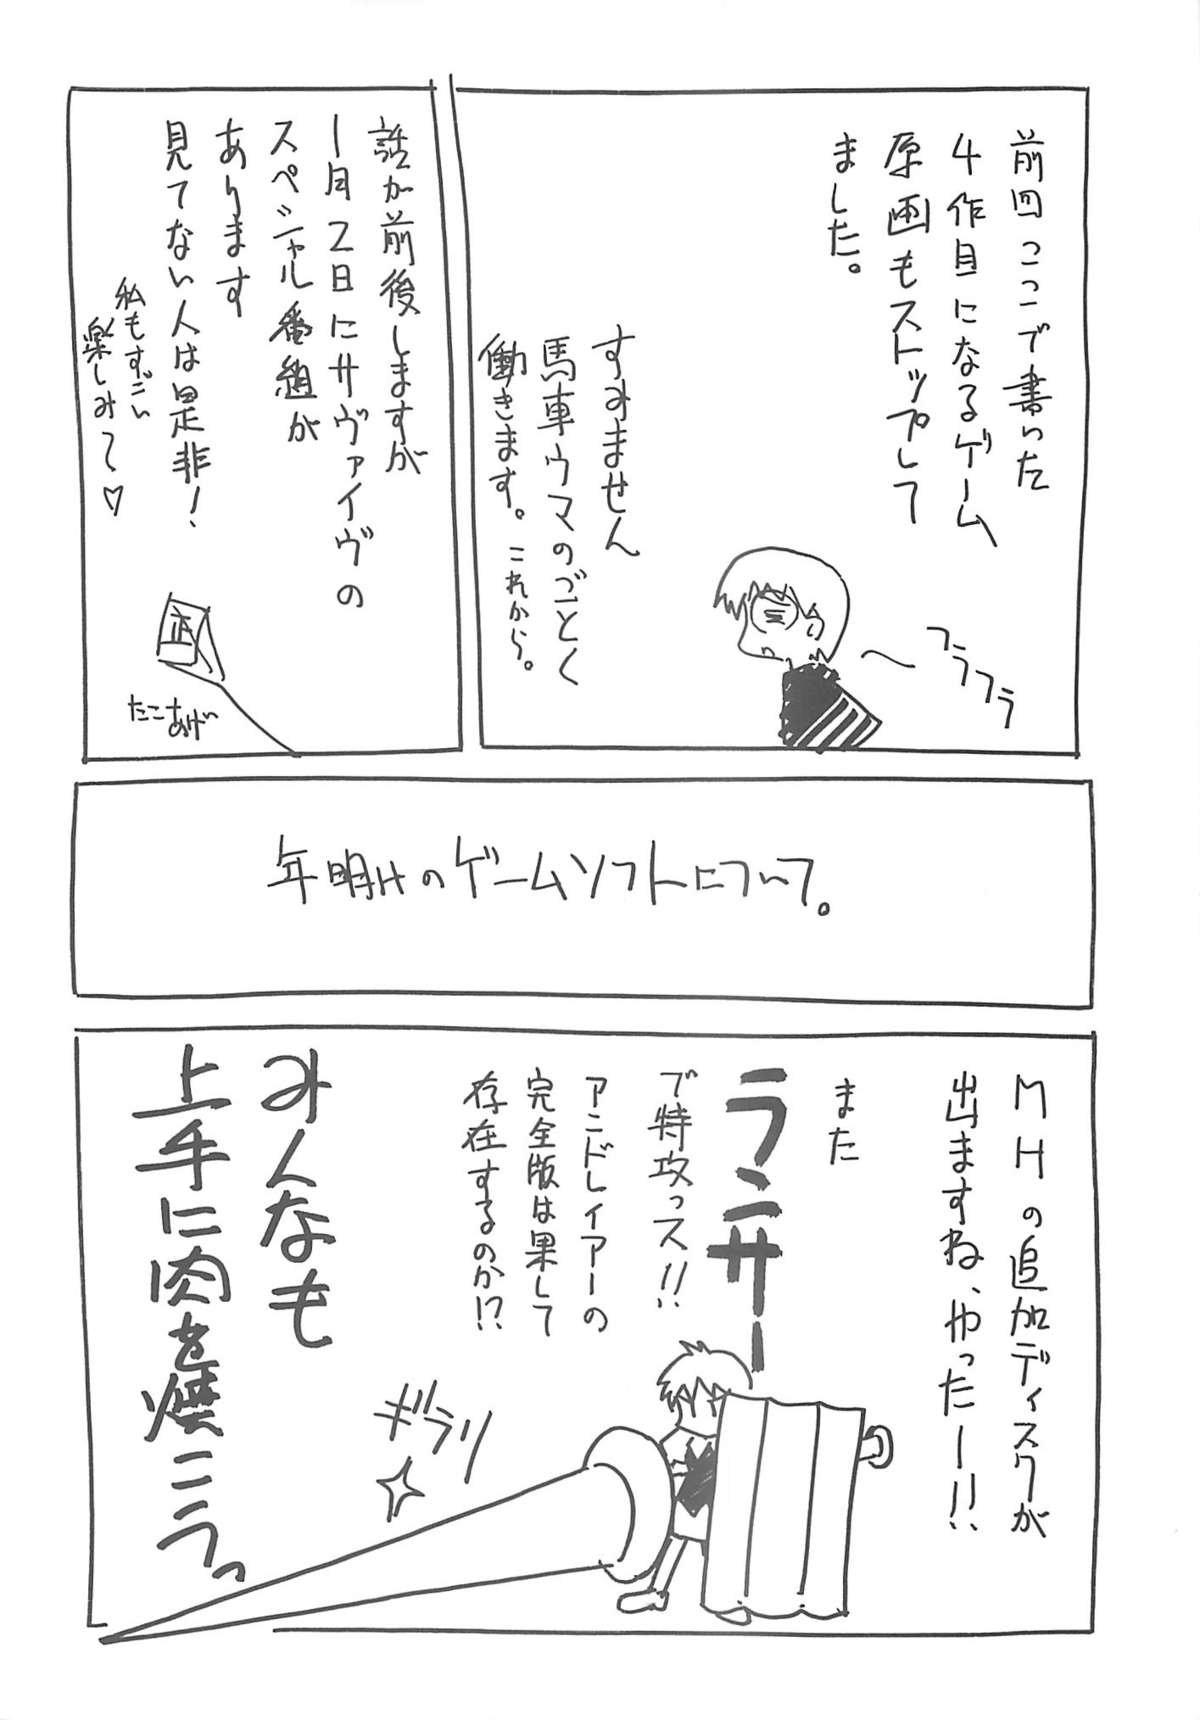 前回ここで書いた
4作目になるゲーム
原画もストップして
ました。
すみません
馬車ウマのごとく
働きます。これから。
フラフラ
話が前後しますが
1月2日にサヴァイヴの
スペシャル番組が
あります
見てない人は是非!
私もすごい
楽しみ〜♡
正
たこ
あげ
年明けのゲームソフトについて。
MHの追加ディスクが
出ますね、やったー!!
また
ランサー
で特攻っス!!
アンドレイアーの
完全版は果して
存在するのか!?
ギラリ
みんなも
上手に肉を焼こうっ